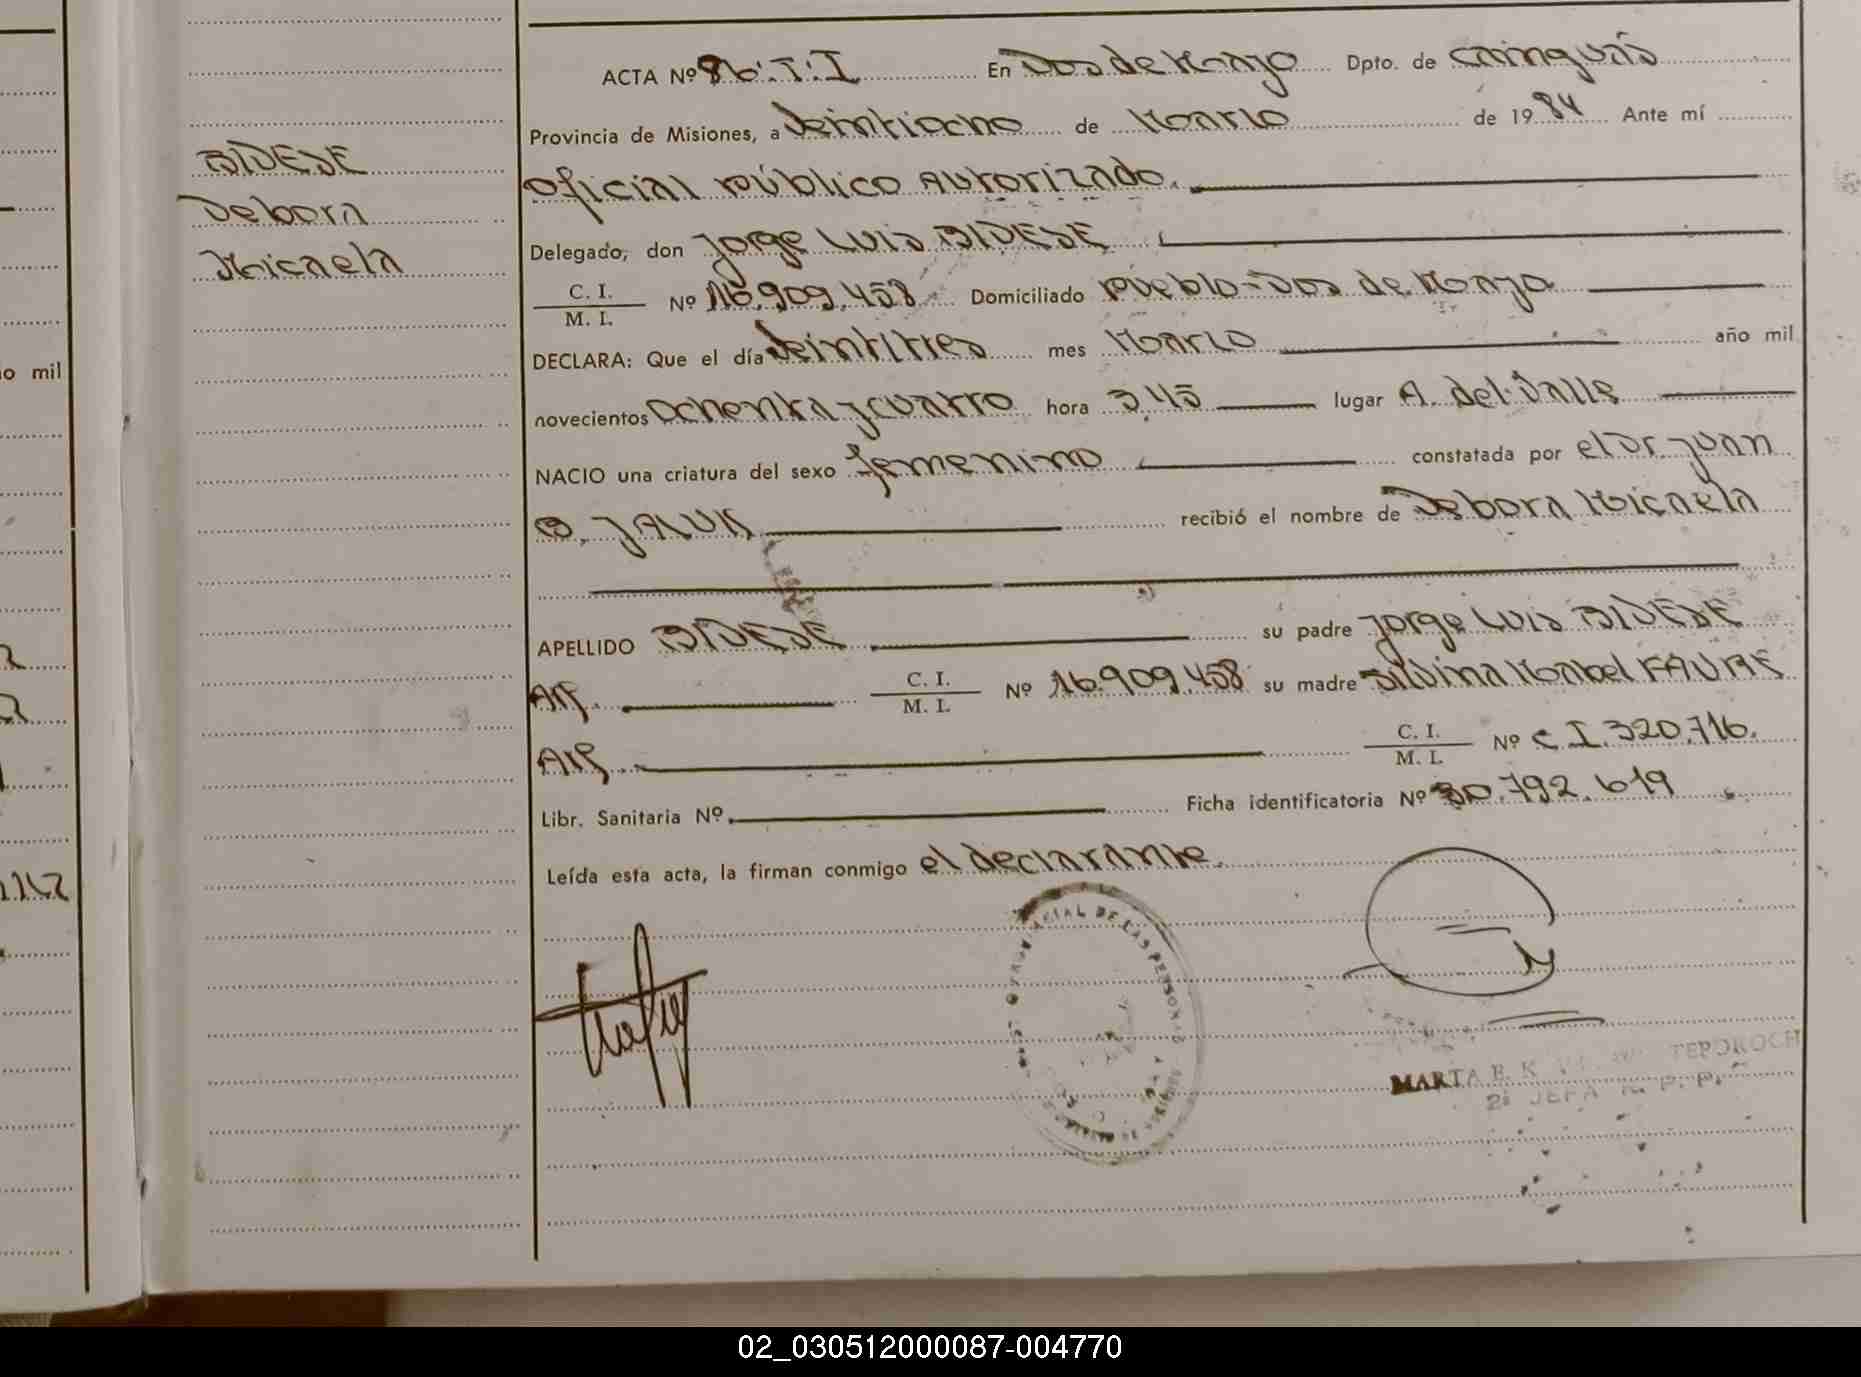 ACTA Nº 86.T.I En Dos de Mayo Dpto. de Cainguás
Provincia de Misiones, a Veintiocho de Marzo de 1984 Ante mí
Oficial público Autorizado.
Delegado, don Jorge Luis BIDESE
C. I. / M. I. Nº 16.909.458 Domiciliado pueblo-Dos de Mayo
DECLARA: Que el día Veintitres mes Marzo año mil
novecientos Ochenta y cuatro hora 3,45 lugar A. del Valle
NACIO una criatura del sexo femenino constatada por el Dr. Juan
recibió el nombre de Debora Micaela
APELLIDO BIDESE su padre Jorge Luis BIDESE
Arg. C. I. / M. I. Nº 16.909.458 su madre Silvina Mabel
Arg. C. I. / M. I. Nº C.I. 320.716.
Libr. Sanitaria Nº Ficha identificatoria Nº 30.792.619
Leída esta acta, la firman conmigo el declarante.
BIDESE
Debora
Micaela
o mil
DE LAS PERSONAS
MARTA E. K
2ª JEFA R. P. P.
02_030512000087-004770